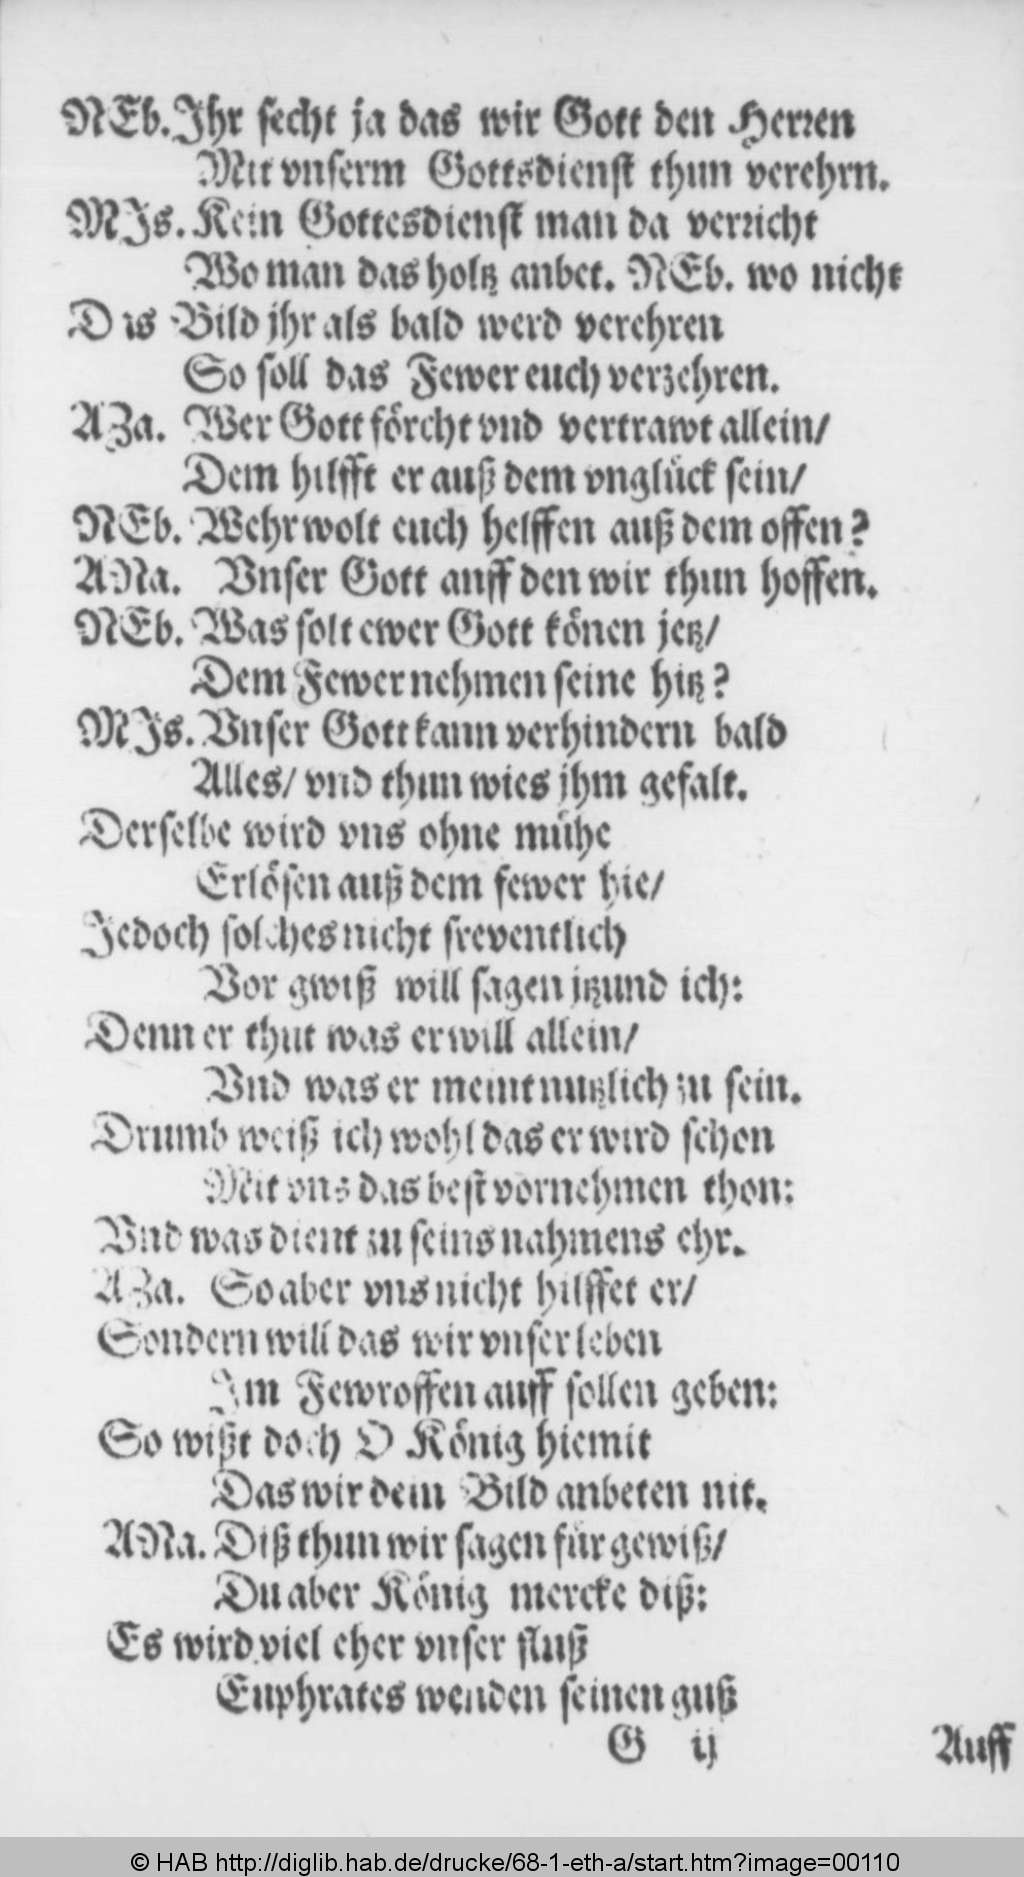 NEb. Jhr secht ja das wir Gott den Herren
Mit vnserm Gottsdienst thun verehrn.
MJs. Kein Gottesdienst man da verricht
Wo man das holtz anbet. NEb. wo nicht
Dis Bild jhr als bald werd verehren
So soll das Fewer euch verzehren.
AZa. Wer Gott förcht vnd vertrawt allein/
Dem hilfft er auß dem vnglück sein/
NEb. Wehr wolt euch helffen auß dem offen?
ANa. Vnser Gott auff den wir thun hoffen.
NEb. Was solt ewer Gott könen jetz/
Dem Fewer nehmen seine hitz?
MJs. Vnser Gott kann verhindern bald
Alles/ vnd thun wies jhm gefalt.
Derselbe wird vns ohne mühe
Erlösen auß dem fewer hie/
Jedoch solches nicht freventlich
Vor gwiß will sagen jtzund ich:
Denn er thut was er will allein/
Vnd was er meint nutzlich zu sein.
Drumb weiß ich wohl das er wird schon
Mit vns das best vornehmen thon:
Vnd was dient zu seins nahmens ehr.
AZa. So aber vns nicht hilffet er/
Sondern will das wir vnser leben
Jm Fewroffen auff sollen geben:
So wißt doch O König hiemit
Das wir dein Bild anbeten nit.
ANa. Diß thun wir sagen für gewiß/
Du aber König mercke diß:
Es wird viel eher vnser fluß
Euphrates wenden seinen guß
G ij Auff
© HAB http://diglib.hab.de/drucke/68-1-eth-a/start.htm?image=00110